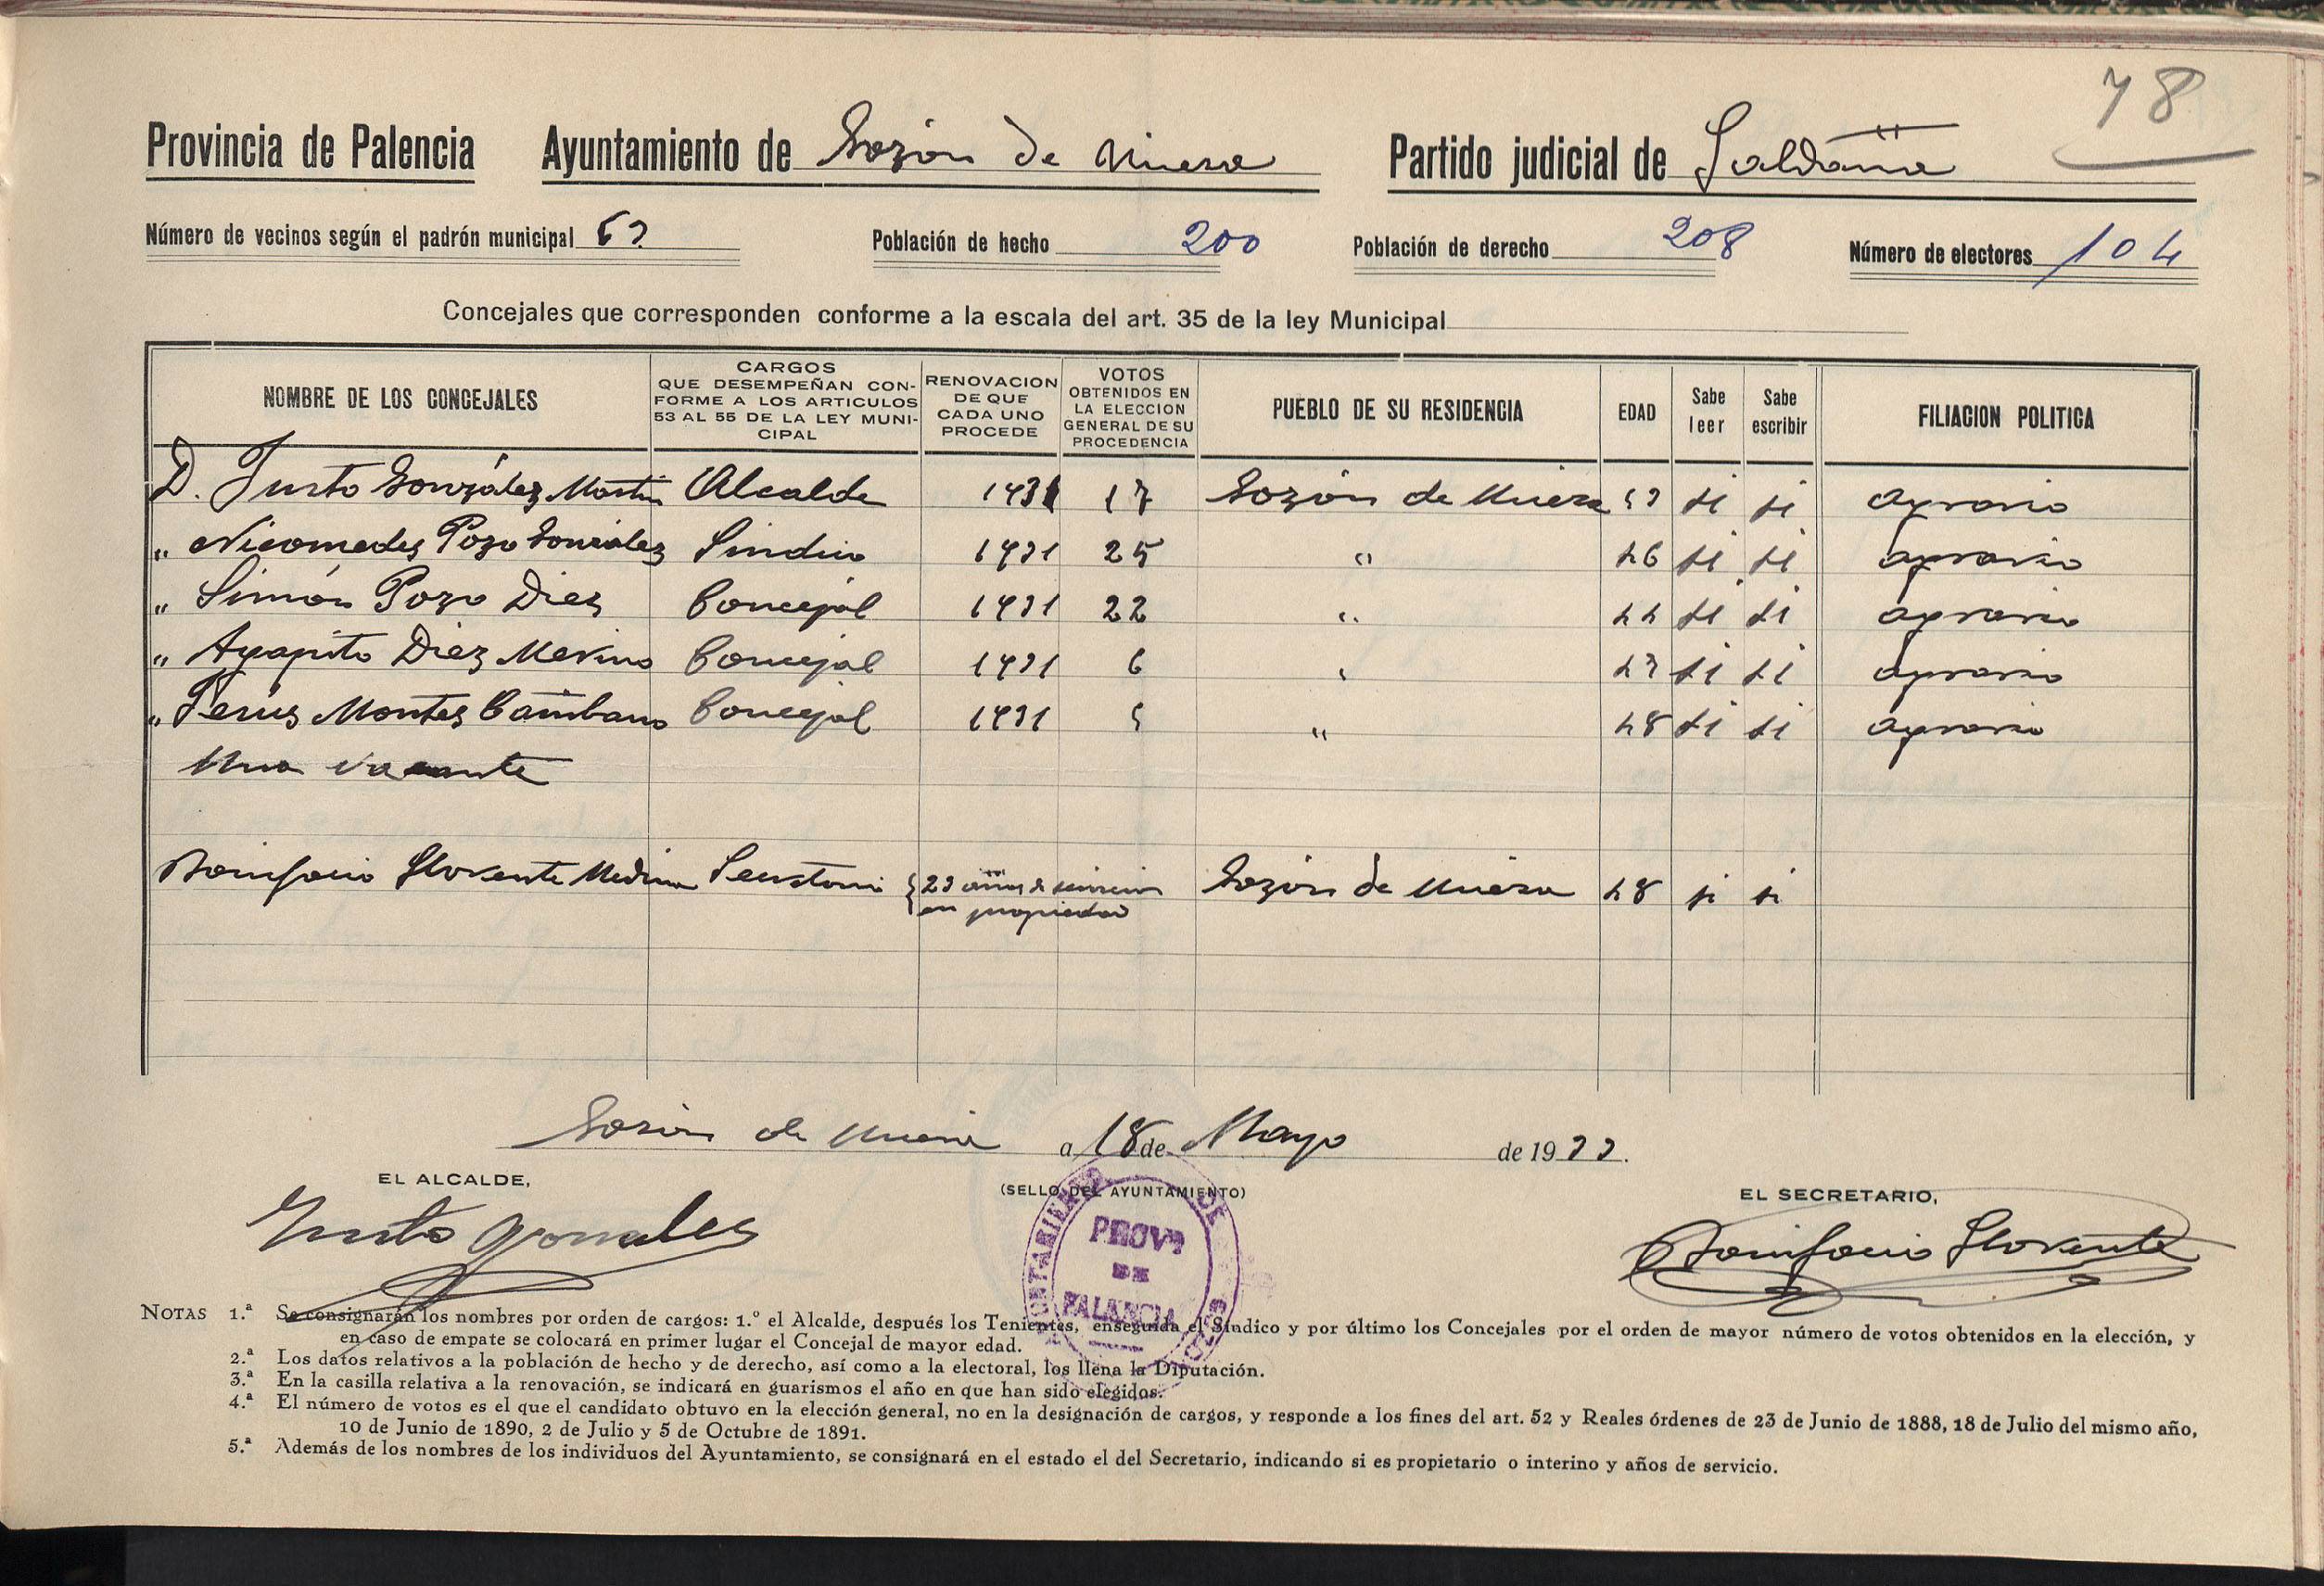 78
Provincia de Palencia Ayuntamiento de Gozón de Ucieza Partido judicial de Saldaña
Número de vecinos según el padrón municipal 63 Población de hecho 200 Población de derecho 208 Número de electores 104
Concejales que corresponden conforme a la escala del art. 35 de la ley Municipal
NOMBRE DE LOS CONCEJALES CARGOS QUE DESEMPEÑAN CONFORME A LOS ARTICULOS 53 AL 55 DE LA LEY MUNICIPAL RENOVACION DE QUE CADA UNO PROCEDE VOTOS OBTENIDOS EN LA ELECCION GENERAL DE SU PROCEDENCIA PUEBLO DE SU RESIDENCIA EDAD Sabe leer Sabe escribir FILIACION POLITICA
D. Justo González Martín Alcalde 1931 17 Gozón de Ucieza 53 si si agrario
„ Nicomedes Pozo González Síndico 1931 25 " 46 si si agrario
„ Simón Pozo Diez Concejal 1931 22 " 44 si si agrario
„ Agapito Diez Merino Concejal 1931 6 " 43 si si agrario
„ Jesús Montes Cambano Concejal 1931 5 " 48 si si agrario
Una vacante
Bonifacio Llorente Medina Secretario {23 años de servicio Gozón de Ucieza 48 si si
en propiedad
Gozón de Ucieza a 18 de Mayo de 1933.
EL ALCALDE, (SELLO DEL AYUNTAMIENTO) EL SECRETARIO,
Justo Gonzales Bonifacio Llorente
AYUNTAMIENTO DE
PROVª
DE
PALENCIA
NOTAS 1.ª Se consignarán los nombres por orden de cargos: 1.º el Alcalde, después los Tenientes, enseguida el Síndico y por último los Concejales por el orden de mayor número de votos obtenidos en la elección, y
en caso de empate se colocará en primer lugar el Concejal de mayor edad.
2.ª Los datos relativos a la población de hecho y de derecho, así como a la electoral, los llena la Diputación.
3.ª En la casilla relativa a la renovación, se indicará en guarismos el año en que han sido elegidos.
4.ª El número de votos es el que el candidato obtuvo en la elección general, no en la designación de cargos, y responde a los fines del art. 52 y Reales órdenes de 23 de Junio de 1888, 18 de Julio del mismo año,
10 de Junio de 1890, 2 de Julio y 5 de Octubre de 1891.
5.ª Además de los nombres de los individuos del Ayuntamiento, se consignará en el estado el del Secretario, indicando si es propietario o interino y años de servicio.